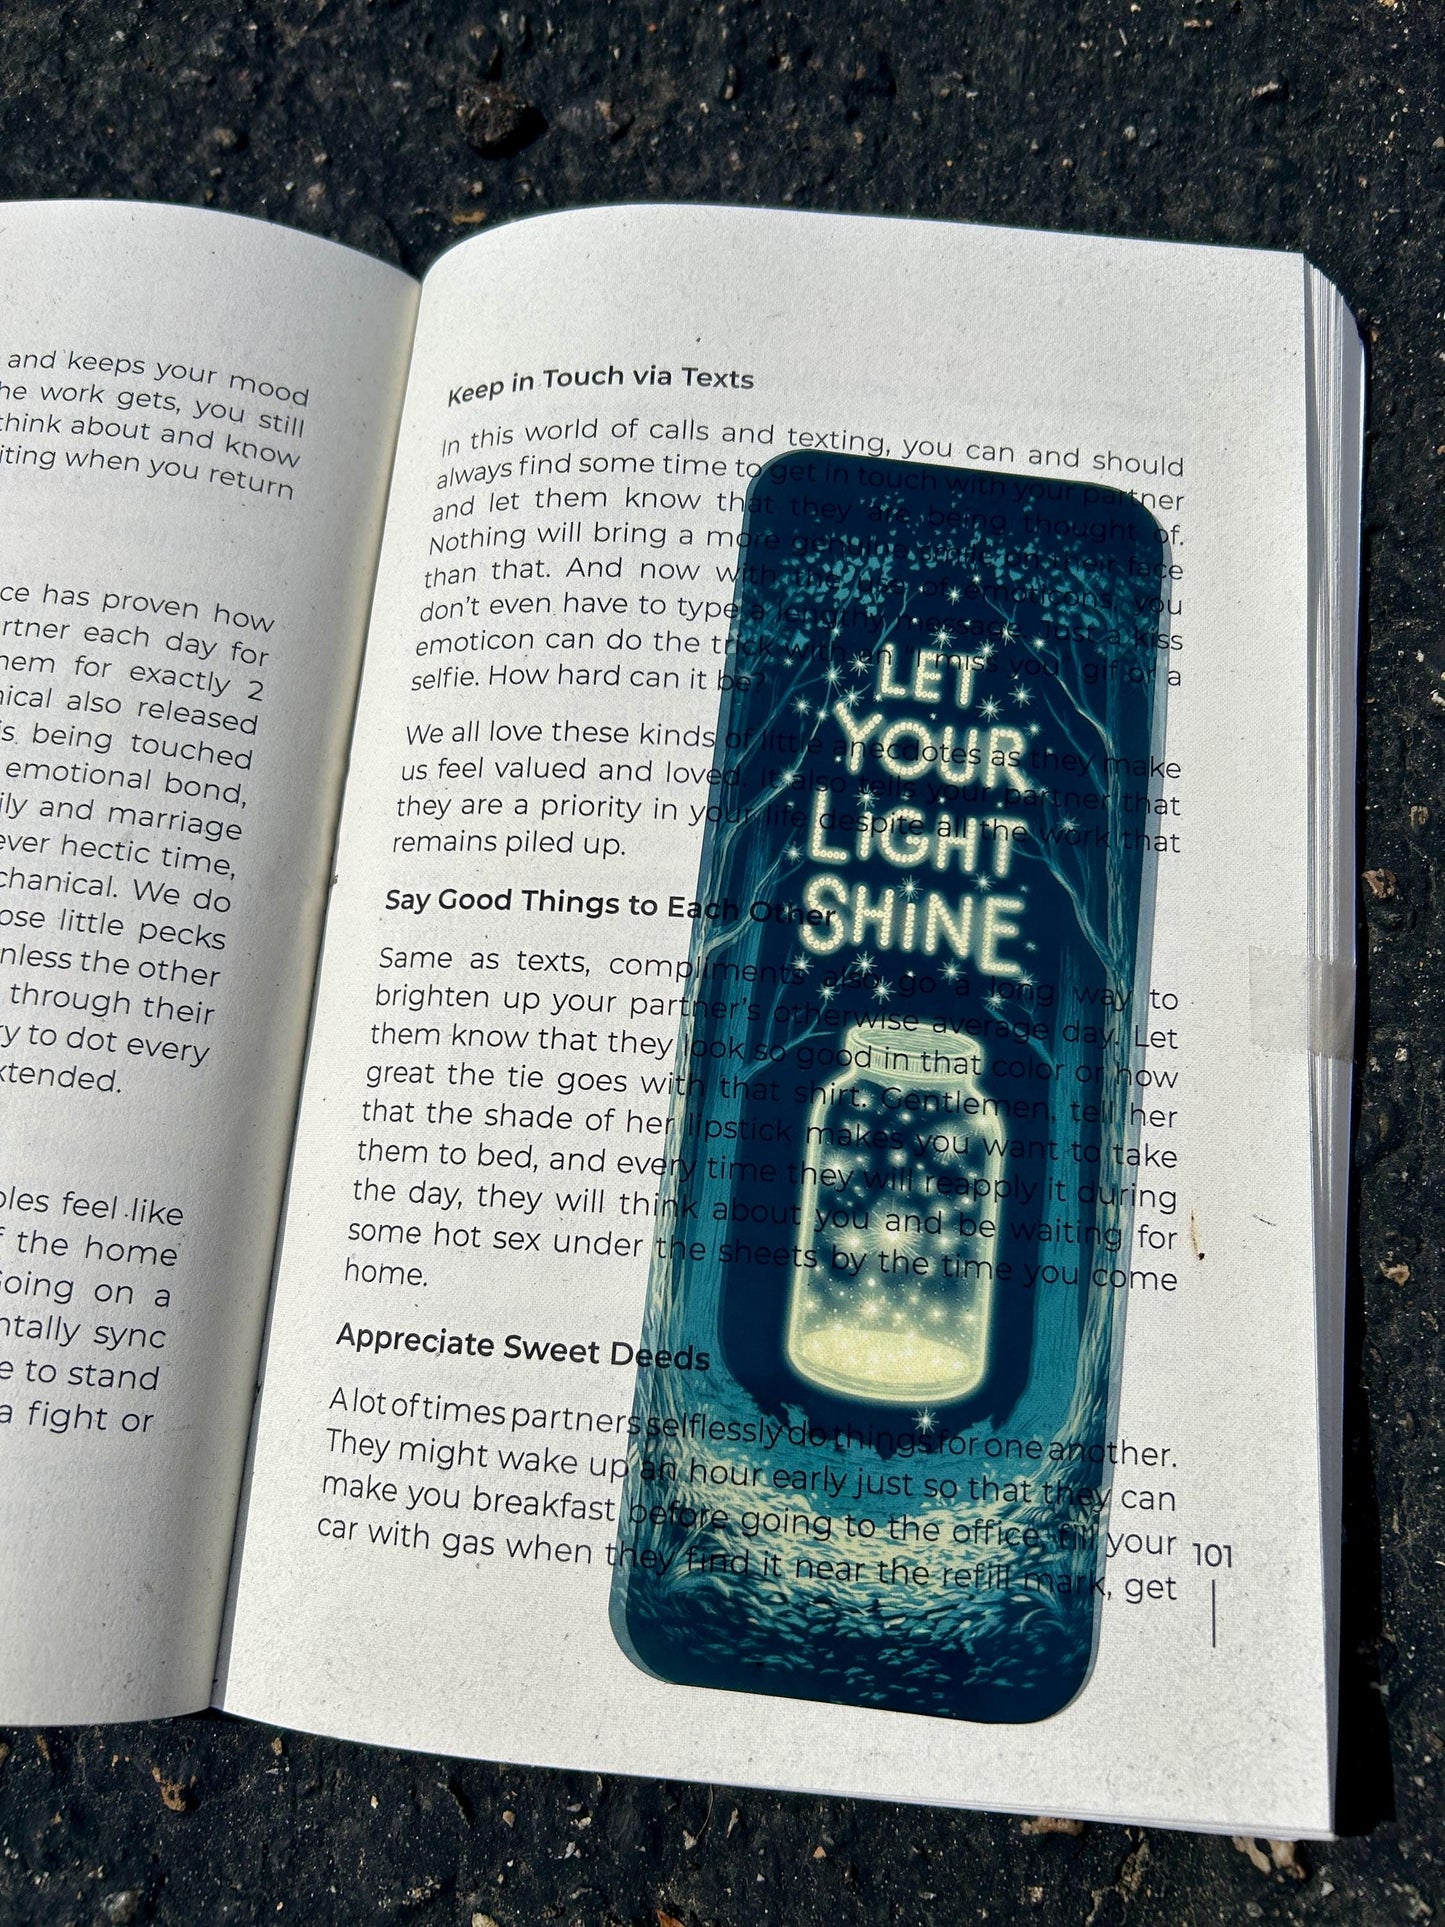 and keeps your mood
he work gets, you still
think about and know
iting when you return
ce has proven how
rtner each day for
hem for exactly 2
nical also released
s being touched
emotional bond,
ily and marriage
ever hectic time,
chanical. We do
ose little pecks
nless the other
through their
ry to dot every
xtended.
ples feel like
f the home
Going on a
ntally sync
e to stand
a fight or
Keep in Touch via Texts
In this world of calls and texting, you can and should
always find some time to get in touch with your partner
and let them know that they are being thought of.
Nothing will bring a more genuine smile on their face
than that. And now with the use of emoticons, you
don't even have to type a lengthy message. Just a kiss
emoticon can do the trick with an "I miss you" gif or a
selfie. How hard can it be?
We all love these kinds of little anecdotes as they make
us feel valued and loved. It also tells your partner that
they are a priority in your life despite all the work that
remains piled up.
Say Good Things to Each Other
Same as texts, compliments also go a long way to
brighten up your partner's otherwise average day. Let
them know that they look so good in that color or how
great the tie goes with that shirt. Gentlemen, tell her
that the shade of her lipstick makes you want to take
them to bed, and every time they will reapply it during
the day, they will think about you and be waiting for
some hot sex under the sheets by the time you come
home.
Appreciate Sweet Deeds
A lot of times partners selflessly do things for one another.
They might wake up an hour early just so that they can
make you breakfast before going to the office, fill your
car with gas when they find it near the refill mark, get
101
LET
YOUR
LIGHT
SHINE